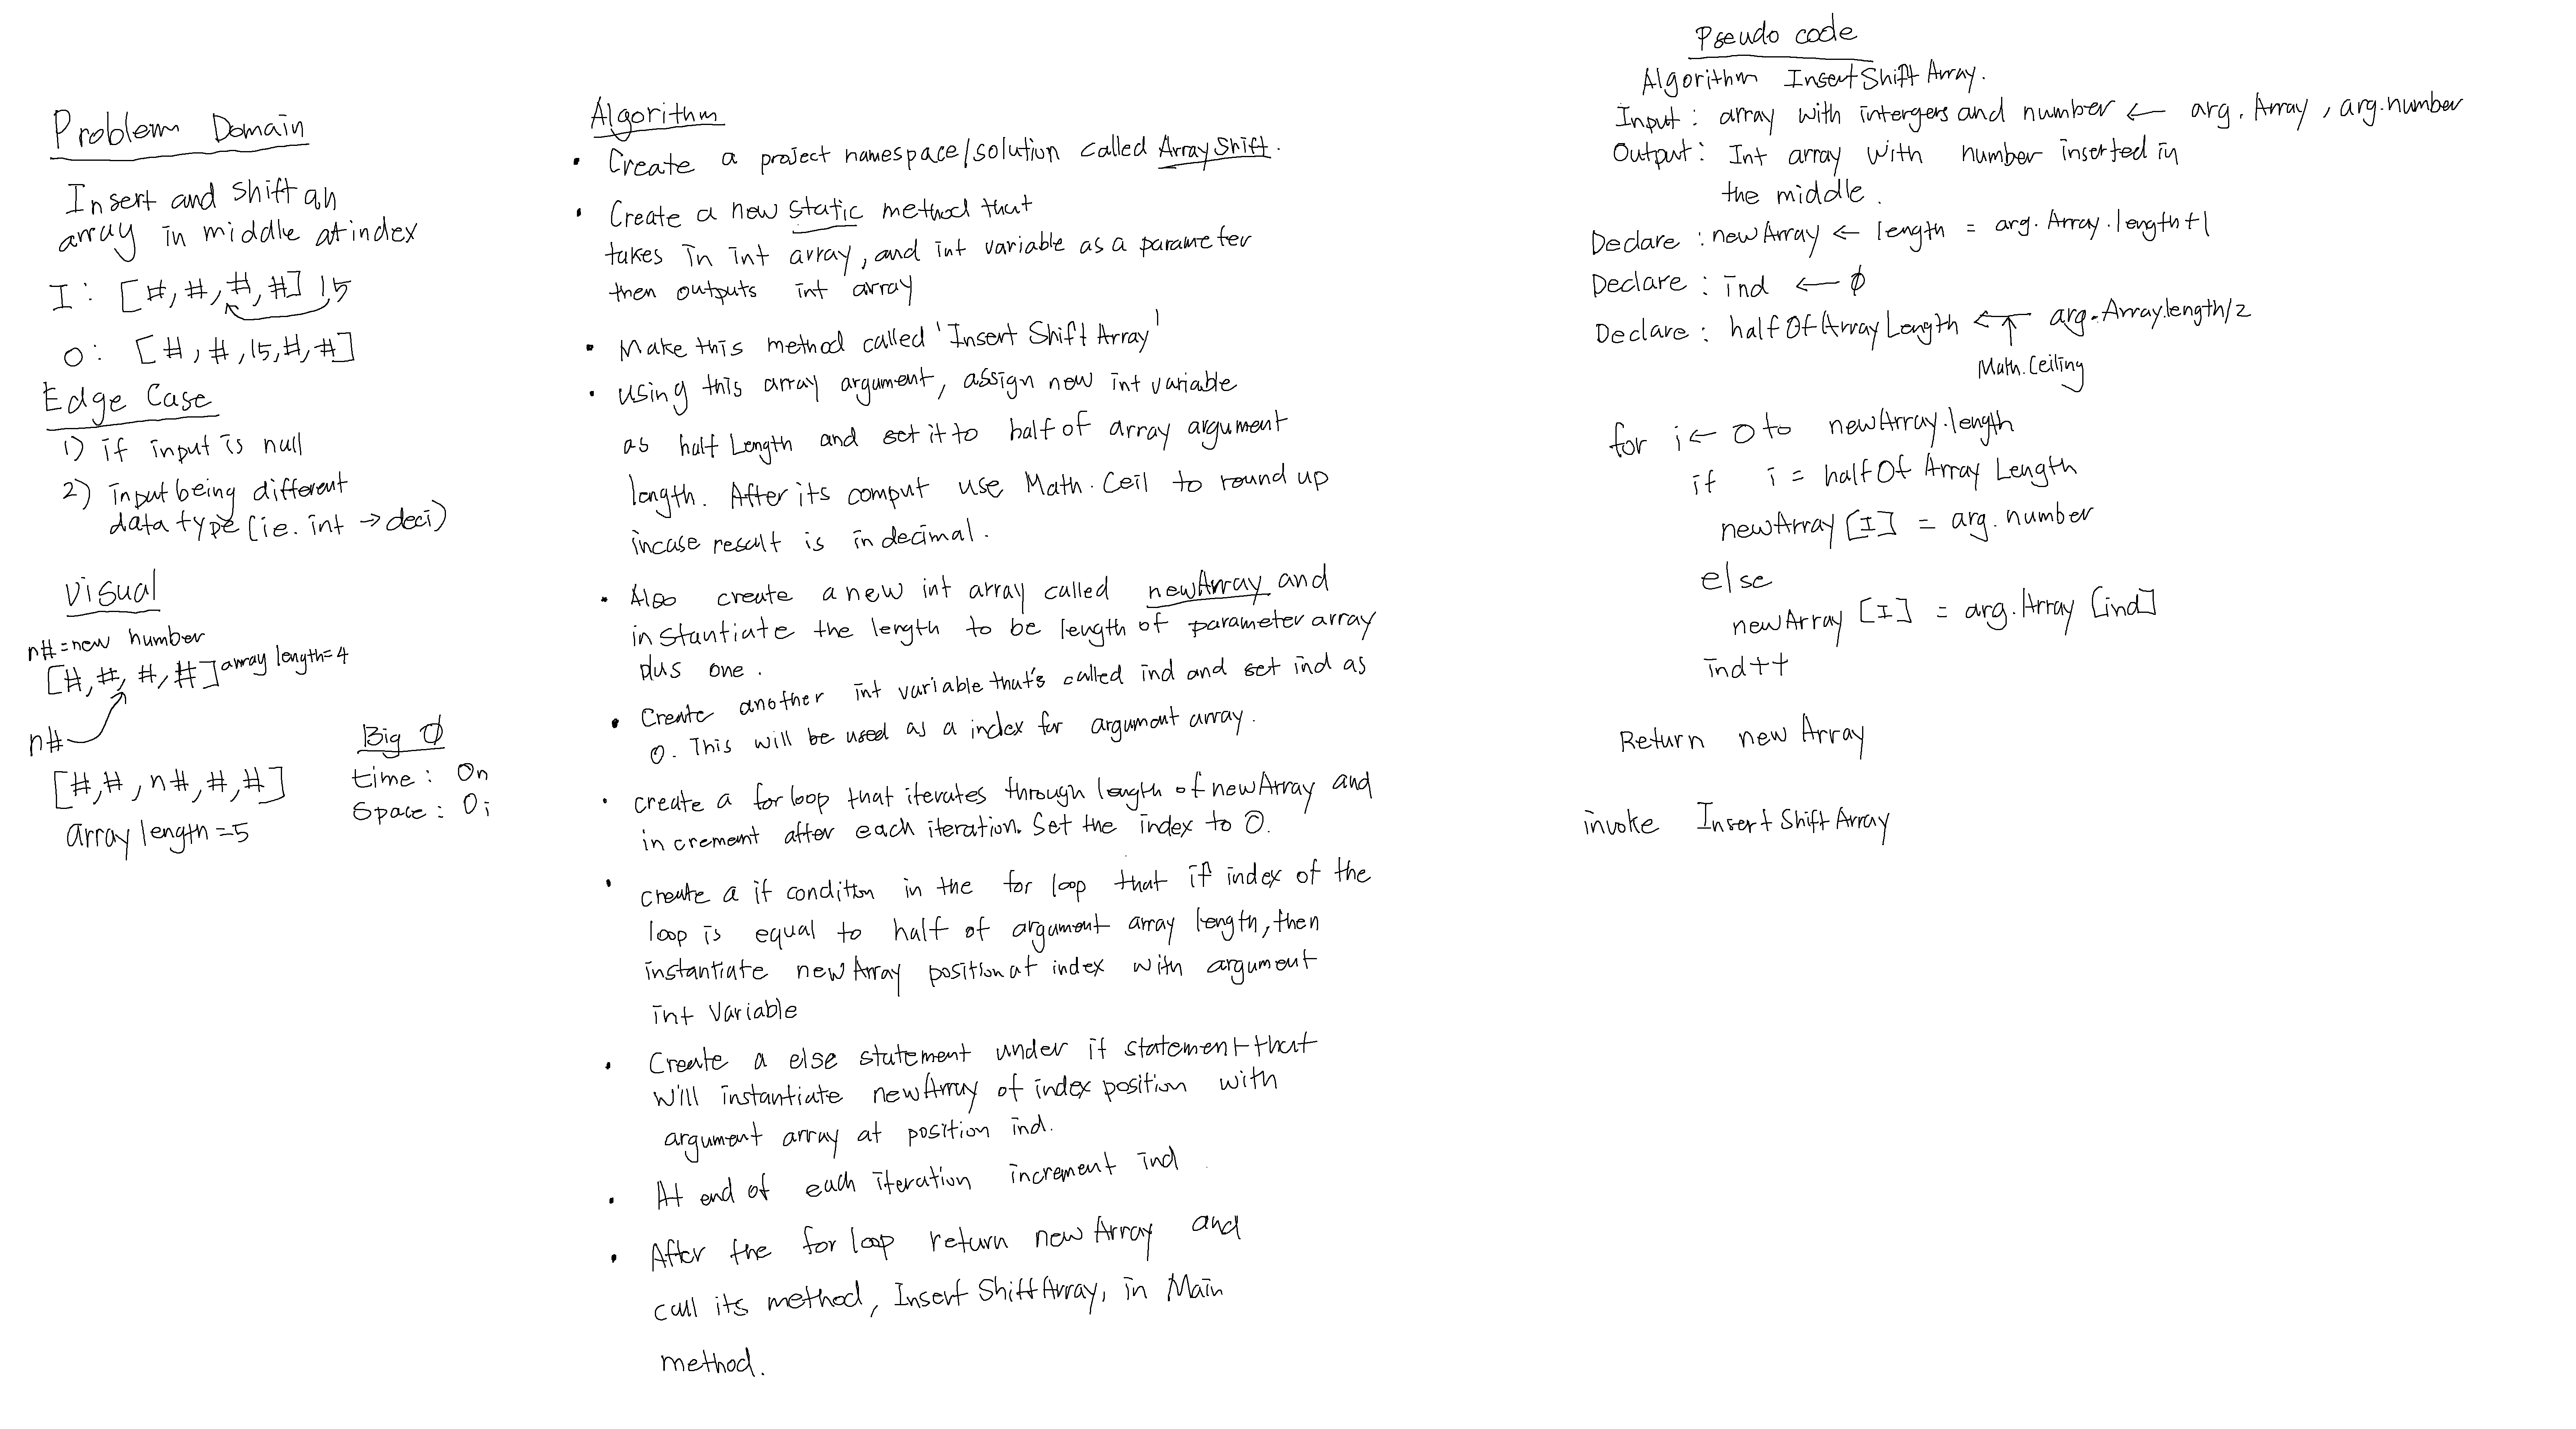 Problem Domain
Insert and shift an
array in middle at index
I: [#, #, #, #] 15
O: [#, #, 15, #, #]
Edge Case
1) if input is null
2) input being different
data type (ie. int → deci)
Visual
n# = new number
[#, #, #, #] array length = 4
n#
[#, #, n#, #, #]
array length = 5
Big O
time: On
Space: O1
Algorithm
• Create a project namespace/solution called ArrayShift.
• Create a new static method that
takes in int array, and int variable as a parameter
then outputs int array
• Make this method called 'Insert Shift Array'
• using this array argument, assign new int variable
as half Length and set it to half of array argument
length. After its comput use Math.Ceil to round up
incase result is in decimal.
• Also create a new int array called newArray and
instantiate the length to be length of parameter array
plus one.
• Create another int variable that's called ind and set ind as
0. This will be used as a index for argument array.
• create a for loop that iterates through length of newArray and
increment after each iteration. Set the index to 0.
• create a if condition in the for loop that if index of the
loop is equal to half of argument array length, then
instantiate newArray position at index with argument
int Variable
• Create a else statement under if statement that
will instantiate newArray of index position with
argument array at position ind.
• At end of each iteration increment ind
• After the for loop return newArray and
call its method, InsertShiftArray, in Main
method.
Pseudo code
Algorithm InsertShiftArray.
Input: array with intergers and number ← arg.Array, arg.number
Output: Int array with number inserted in
the middle.
Declare: newArray ← length = arg.Array.length+1
Declare: ind ← 0
Declare: halfOfArrayLength ← arg.Array.length/2
↑
Math.Ceiling
for i ← 0 to newArray.length
if i = halfOfArrayLength
newArray [I] = arg.number
else
newArray [I] = arg.Array [ind]
ind++
Return newArray
invoke InsertShiftArray